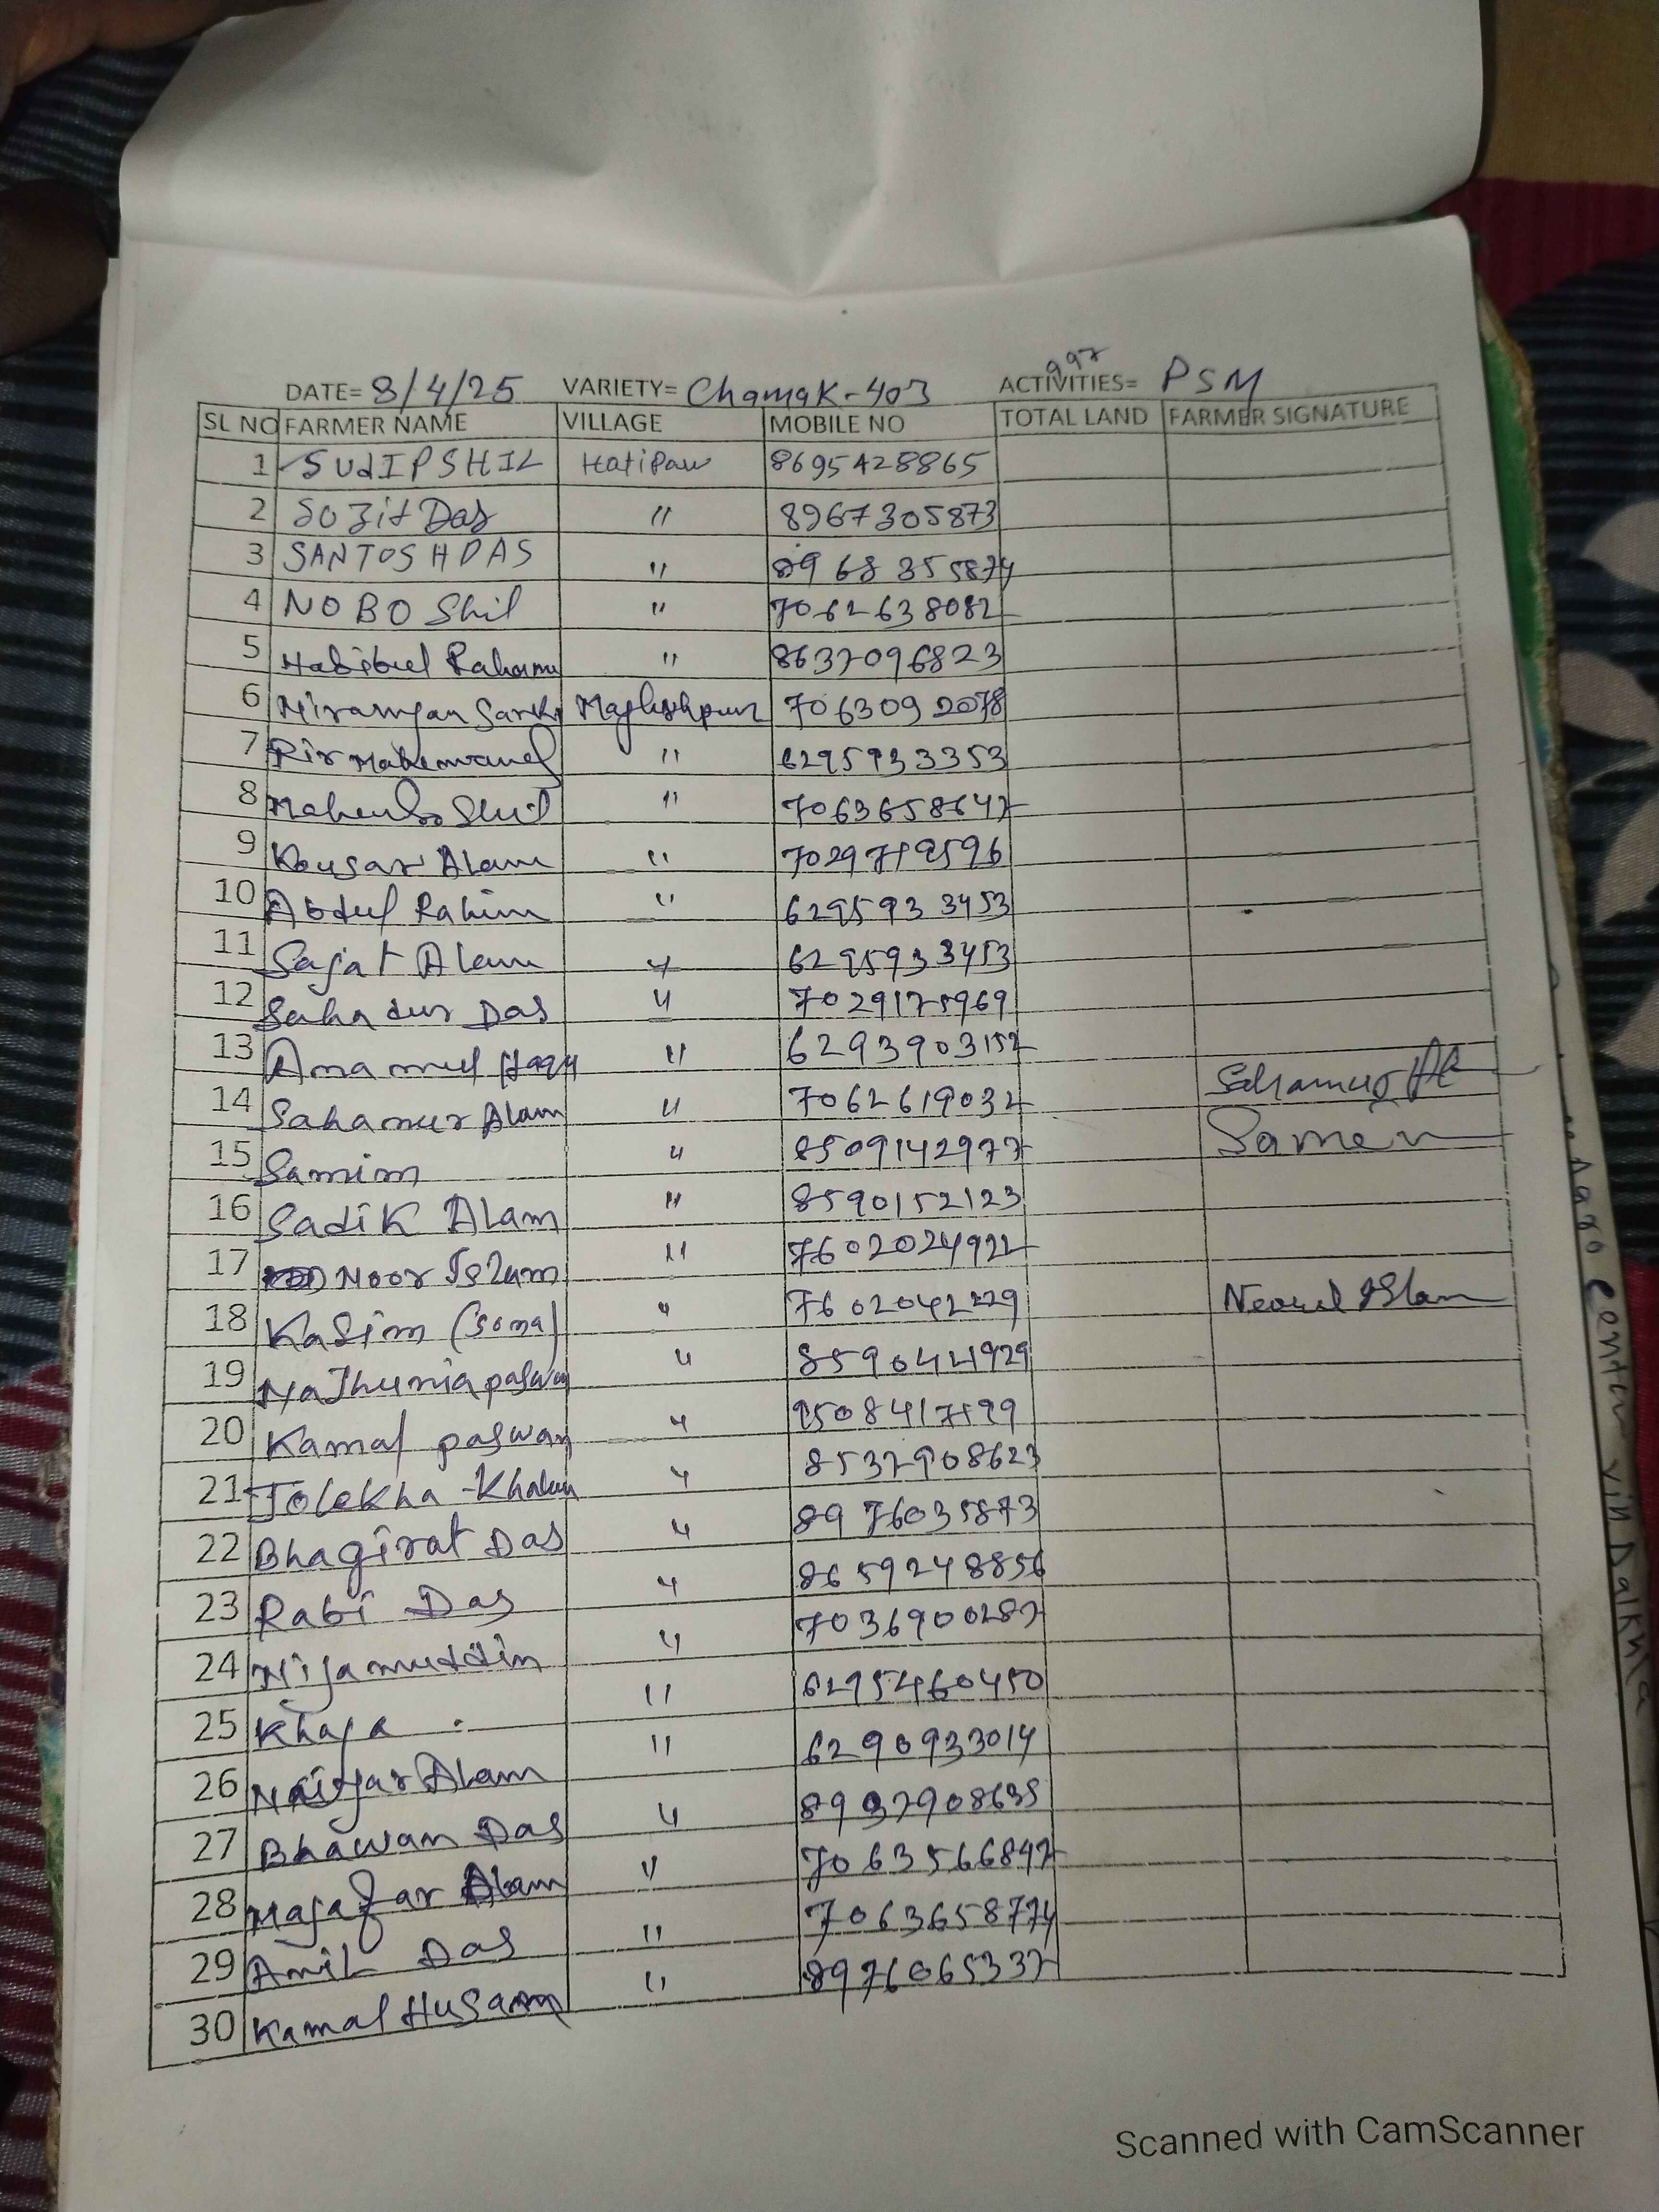 997
DATE= 8/4/25 VARIETY= Chamak-403 ACTIVITIES= PSM
SL NO FARMER NAME VILLAGE MOBILE NO TOTAL LAND FARMER SIGNATURE
1 SUdIP SHIL Hatipaw 8695428865
2 Sozit Das " 8967305873
3 SANTOSH DAS " 8968355874
4 NOBO Shil " 7062638082
5 Habibul Rahamu " 8637096823
6 Niranyan Sarkr 7063092078
7 " 6295933353
8 Shil " 7063658647
9 Kousar Alam " 7029719596
10 Abdul Rahim " 6295933453
11 Sajat Alam " 6295933453
12 Sahadur Das " 7029175969
13 Anamul Haqu " 6293903152
14 Sahamur Alam " 7062619032 Sahamur Al
15 Samim " 8509142977 Samen
16 Sadik Alam " 8590152123
17 Noor Islam " 7602024922
18 Kasim (Soma) " 7602042229 Neorul Islam
19 Najhunia paswan " 8590441929
20 Kamal paswan " 9508417199
21 Jolekha Khatun " 8537908623
22 Bhagirat Das " 8976035873
23 Rabi Das " 8659248856
24 Nijamuddin " 7036900287
25 Khaja " 6295460450
26 Naiyar Alam " 6290933014
27 Bhawan Das " 8937908635
28 Majafar Alam " 7063566847
29 Amil Das " 7063658774
30 Kamal Husann " 8976065337
Scanned with CamScanner